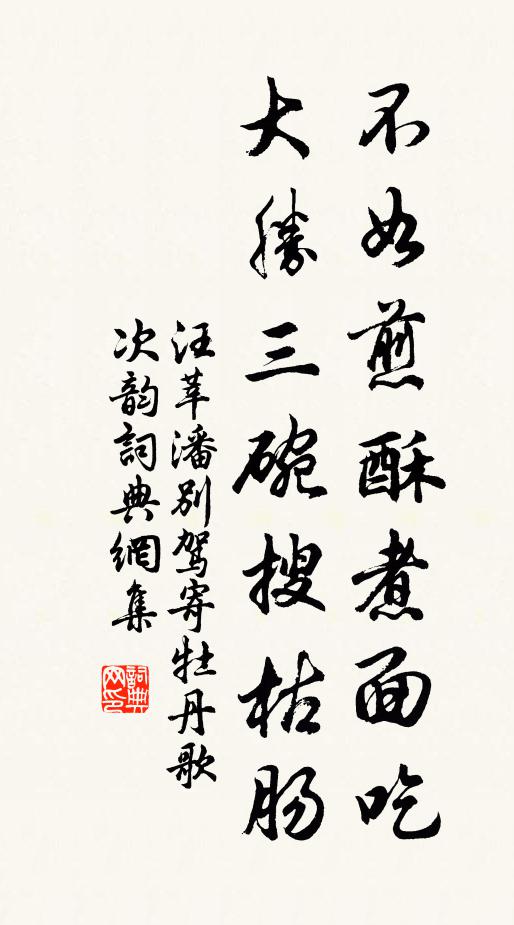 不如煎酥煮面吃
大勝三碗搜枯肠
汪莘潘别駕寄牡丹歌
次韵詞典網集
詞典
网印